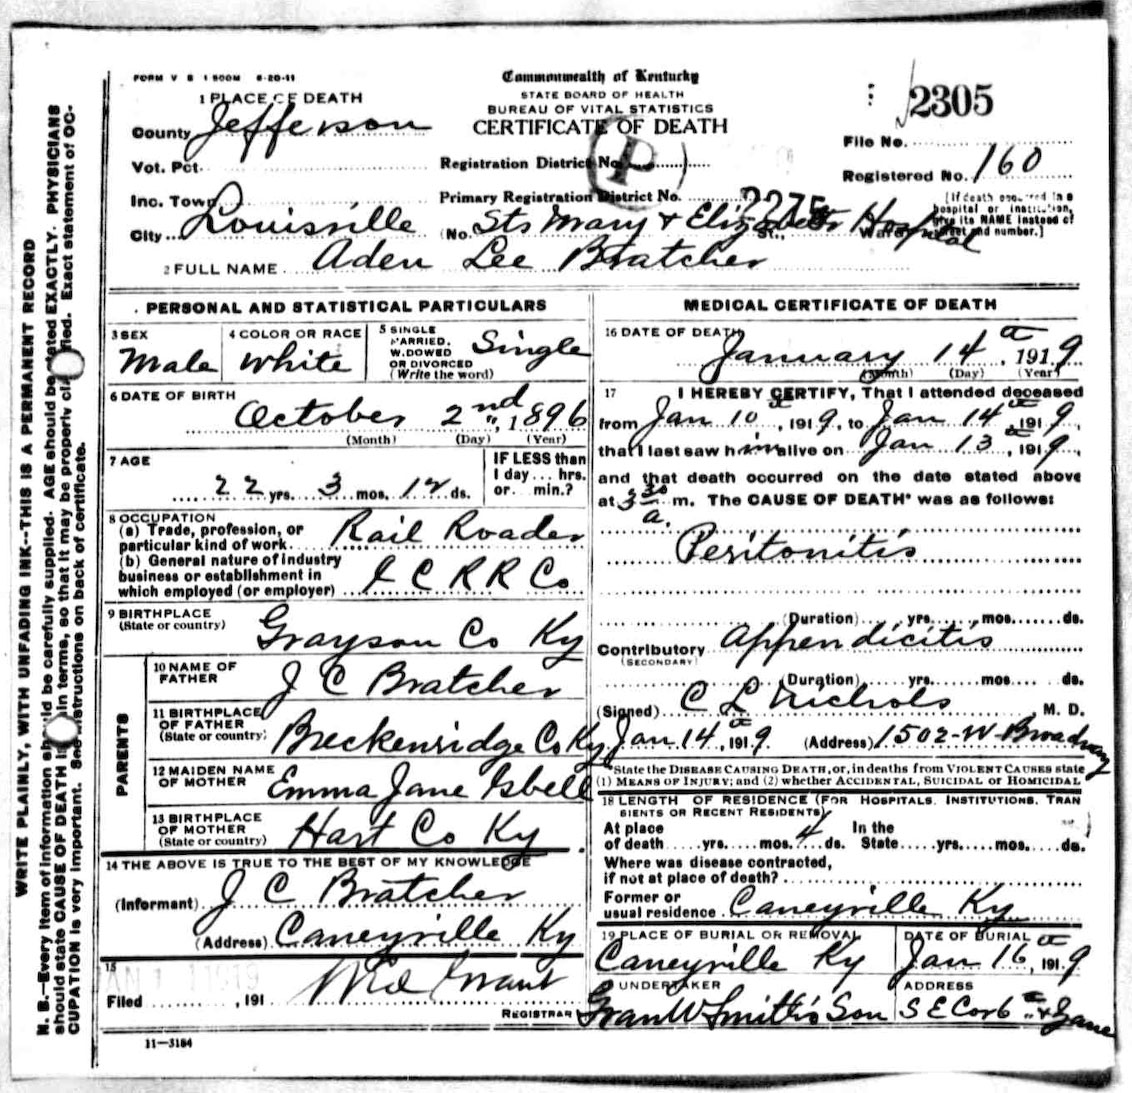 FORM V S 1 500M 6-20-11
Commonwealth of Kentucky
STATE BOARD OF HEALTH
BUREAU OF VITAL STATISTICS
CERTIFICATE OF DEATH
2305
1 PLACE OF DEATH
County Jefferson
Vot. Pct.
Inc. Town
City Louisville
Registration District No.
P
Primary Registration District No. 2275
(No. Sts Mary & Elizabeth Hospital St., Ward)
File No.
Registered No. 160
[If death occurred in a hospital or institution, give its NAME instead of street and number.]
2 FULL NAME Aden Lee Bratcher
PERSONAL AND STATISTICAL PARTICULARS
3 SEX Male
4 COLOR OR RACE White
5 SINGLE MARRIED, WIDOWED OR DIVORCED (Write the word) Single
6 DATE OF BIRTH
October 2nd, 1896
(Month) (Day) (Year)
7 AGE
22 yrs. 3 mos. 12 ds.
IF LESS than 1 day... hrs. or... min.?
8 OCCUPATION
(a) Trade, profession, or particular kind of work Rail Roader
(b) General nature of industry business or establishment in which employed (or employer) I C R R Co
9 BIRTHPLACE
(State or country) Grayson Co Ky
PARENTS
10 NAME OF FATHER J C Bratcher
11 BIRTHPLACE OF FATHER (State or country) Breckenridge Co Ky
12 MAIDEN NAME OF MOTHER Emma Jane Isbell
13 BIRTHPLACE OF MOTHER (State or country) Hart Co Ky
14 THE ABOVE IS TRUE TO THE BEST OF MY KNOWLEDGE
(Informant) J C Bratcher
(Address) Caneyville Ky
15
Filed , 191
REGISTRAR
11—3184
MEDICAL CERTIFICATE OF DEATH
16 DATE OF DEATH
January 14th, 1919
(Month) (Day) (Year)
17 I HEREBY CERTIFY, That I attended deceased
from Jan 10th, 1919, to Jan 14th 1919
that I last saw him alive on Jan 13th, 1919,
and that death occurred on the date stated above
at 3 30 a. m. The CAUSE OF DEATH* was as follows:
Peritonitis
(Duration) yrs. mos. ds.
Contributory Appendicitis
(SECONDARY)
(Duration) yrs. mos. ds.
(Signed) C L Nichols, M. D.
Jan 14th, 1919 (Address) 1502-W-Broadway
*State the DISEASE CAUSING DEATH, or, in deaths from VIOLENT CAUSES state
(1) MEANS OF INJURY; and (2) whether ACCIDENTAL, SUICIDAL or HOMICIDAL
18 LENGTH OF RESIDENCE (FOR HOSPITALS, INSTITUTIONS, TRAN
SIENTS OR RECENT RESIDENTS)
At place of death yrs. mos. 4 ds. In the State yrs. mos. ds.
Where was disease contracted,
if not at place of death?
Former or usual residence Caneyville Ky
19 PLACE OF BURIAL OR REMOVAL Caneyville Ky
DATE OF BURIAL Jan 16th, 1919
UNDERTAKER W Smith's Son
ADDRESS S E Cor 6th &
WRITE PLAINLY, WITH UNFADING INK--THIS IS A PERMANENT RECORD
N. B.—Every item of information should be carefully supplied. AGE should be stated EXACTLY. PHYSICIANS
should state CAUSE OF DEATH in plain terms, so that it may be properly classified. Exact statement of OC-
CUPATION is very important. See instructions on back of certificate.